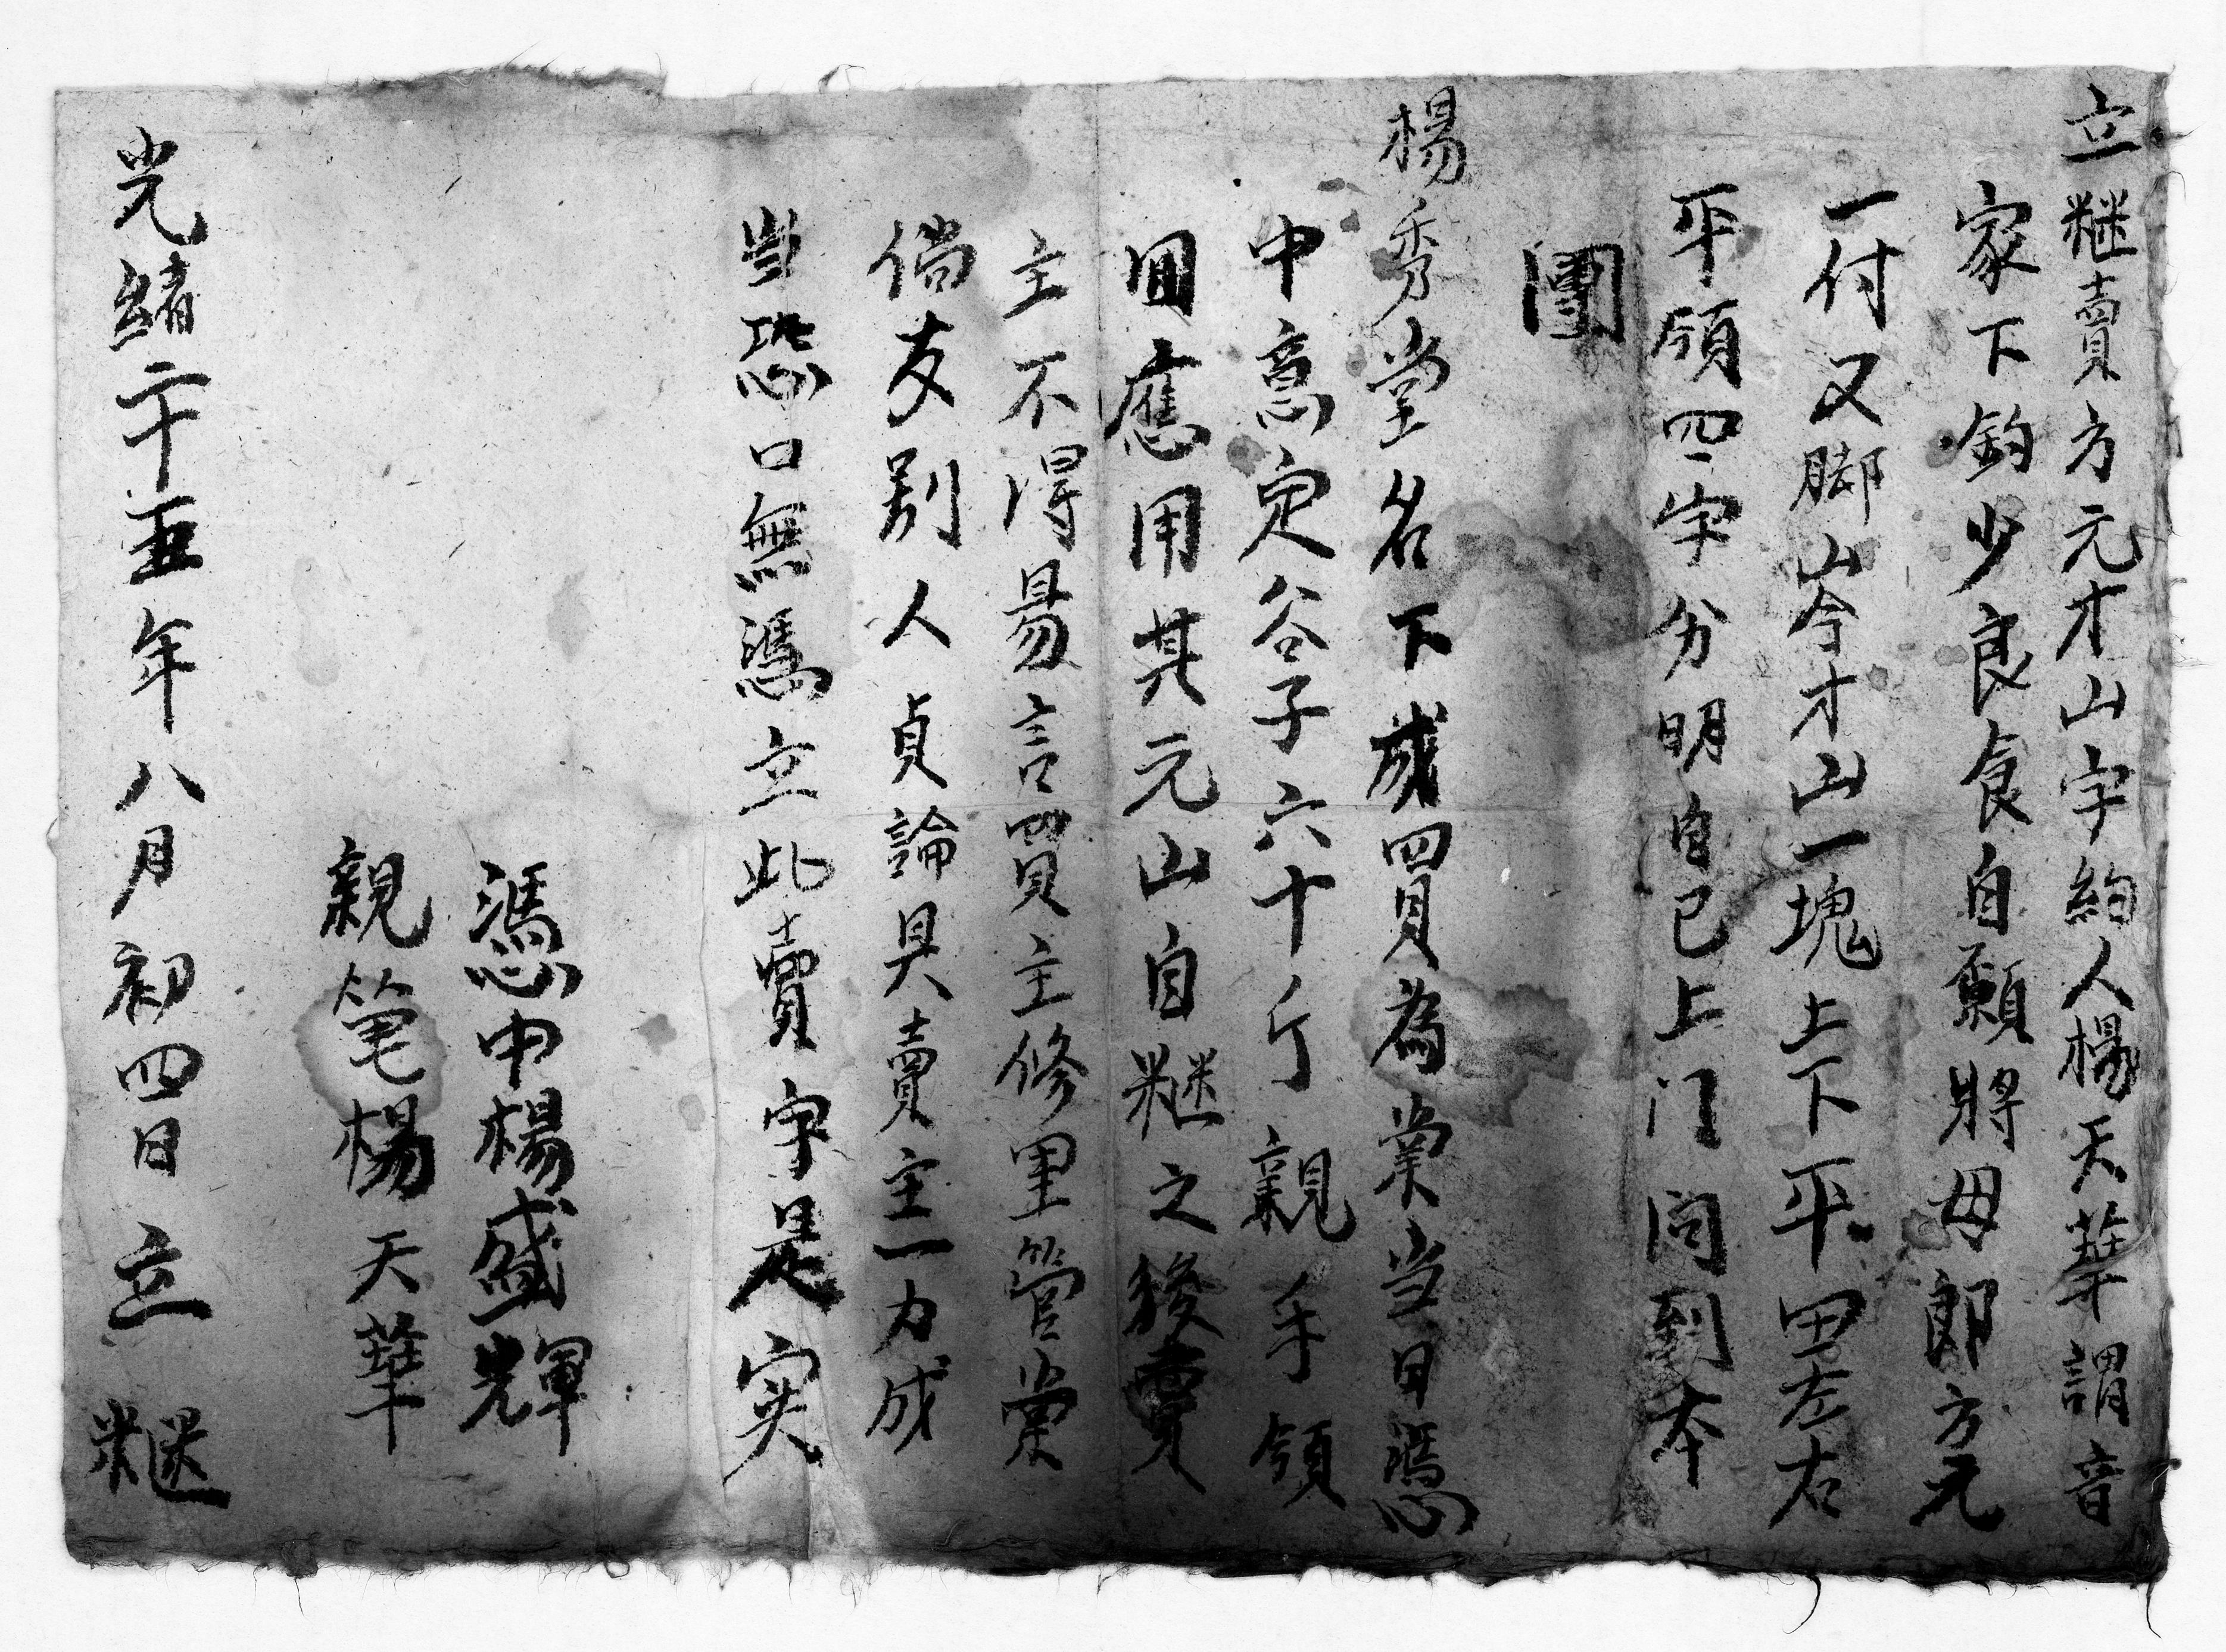 立継賣方元才山字約人楊天華謂音
家下鈞少良食自願將母郎方元
一付又脚山岑才山一塊上下平田左右
平領四字分明自已上门问到本
團
楊秀堂名下成四買為業当日憑
中意定谷子六十斤親手領
囬應用其元山自継之後賣
主不得昜言買主修里管業
倘友别人貞論具賣主一力成
当恐口無憑立此賣字是实
憑中楊盛輝
親笔楊天華
光緒二十五年八月初四日立継